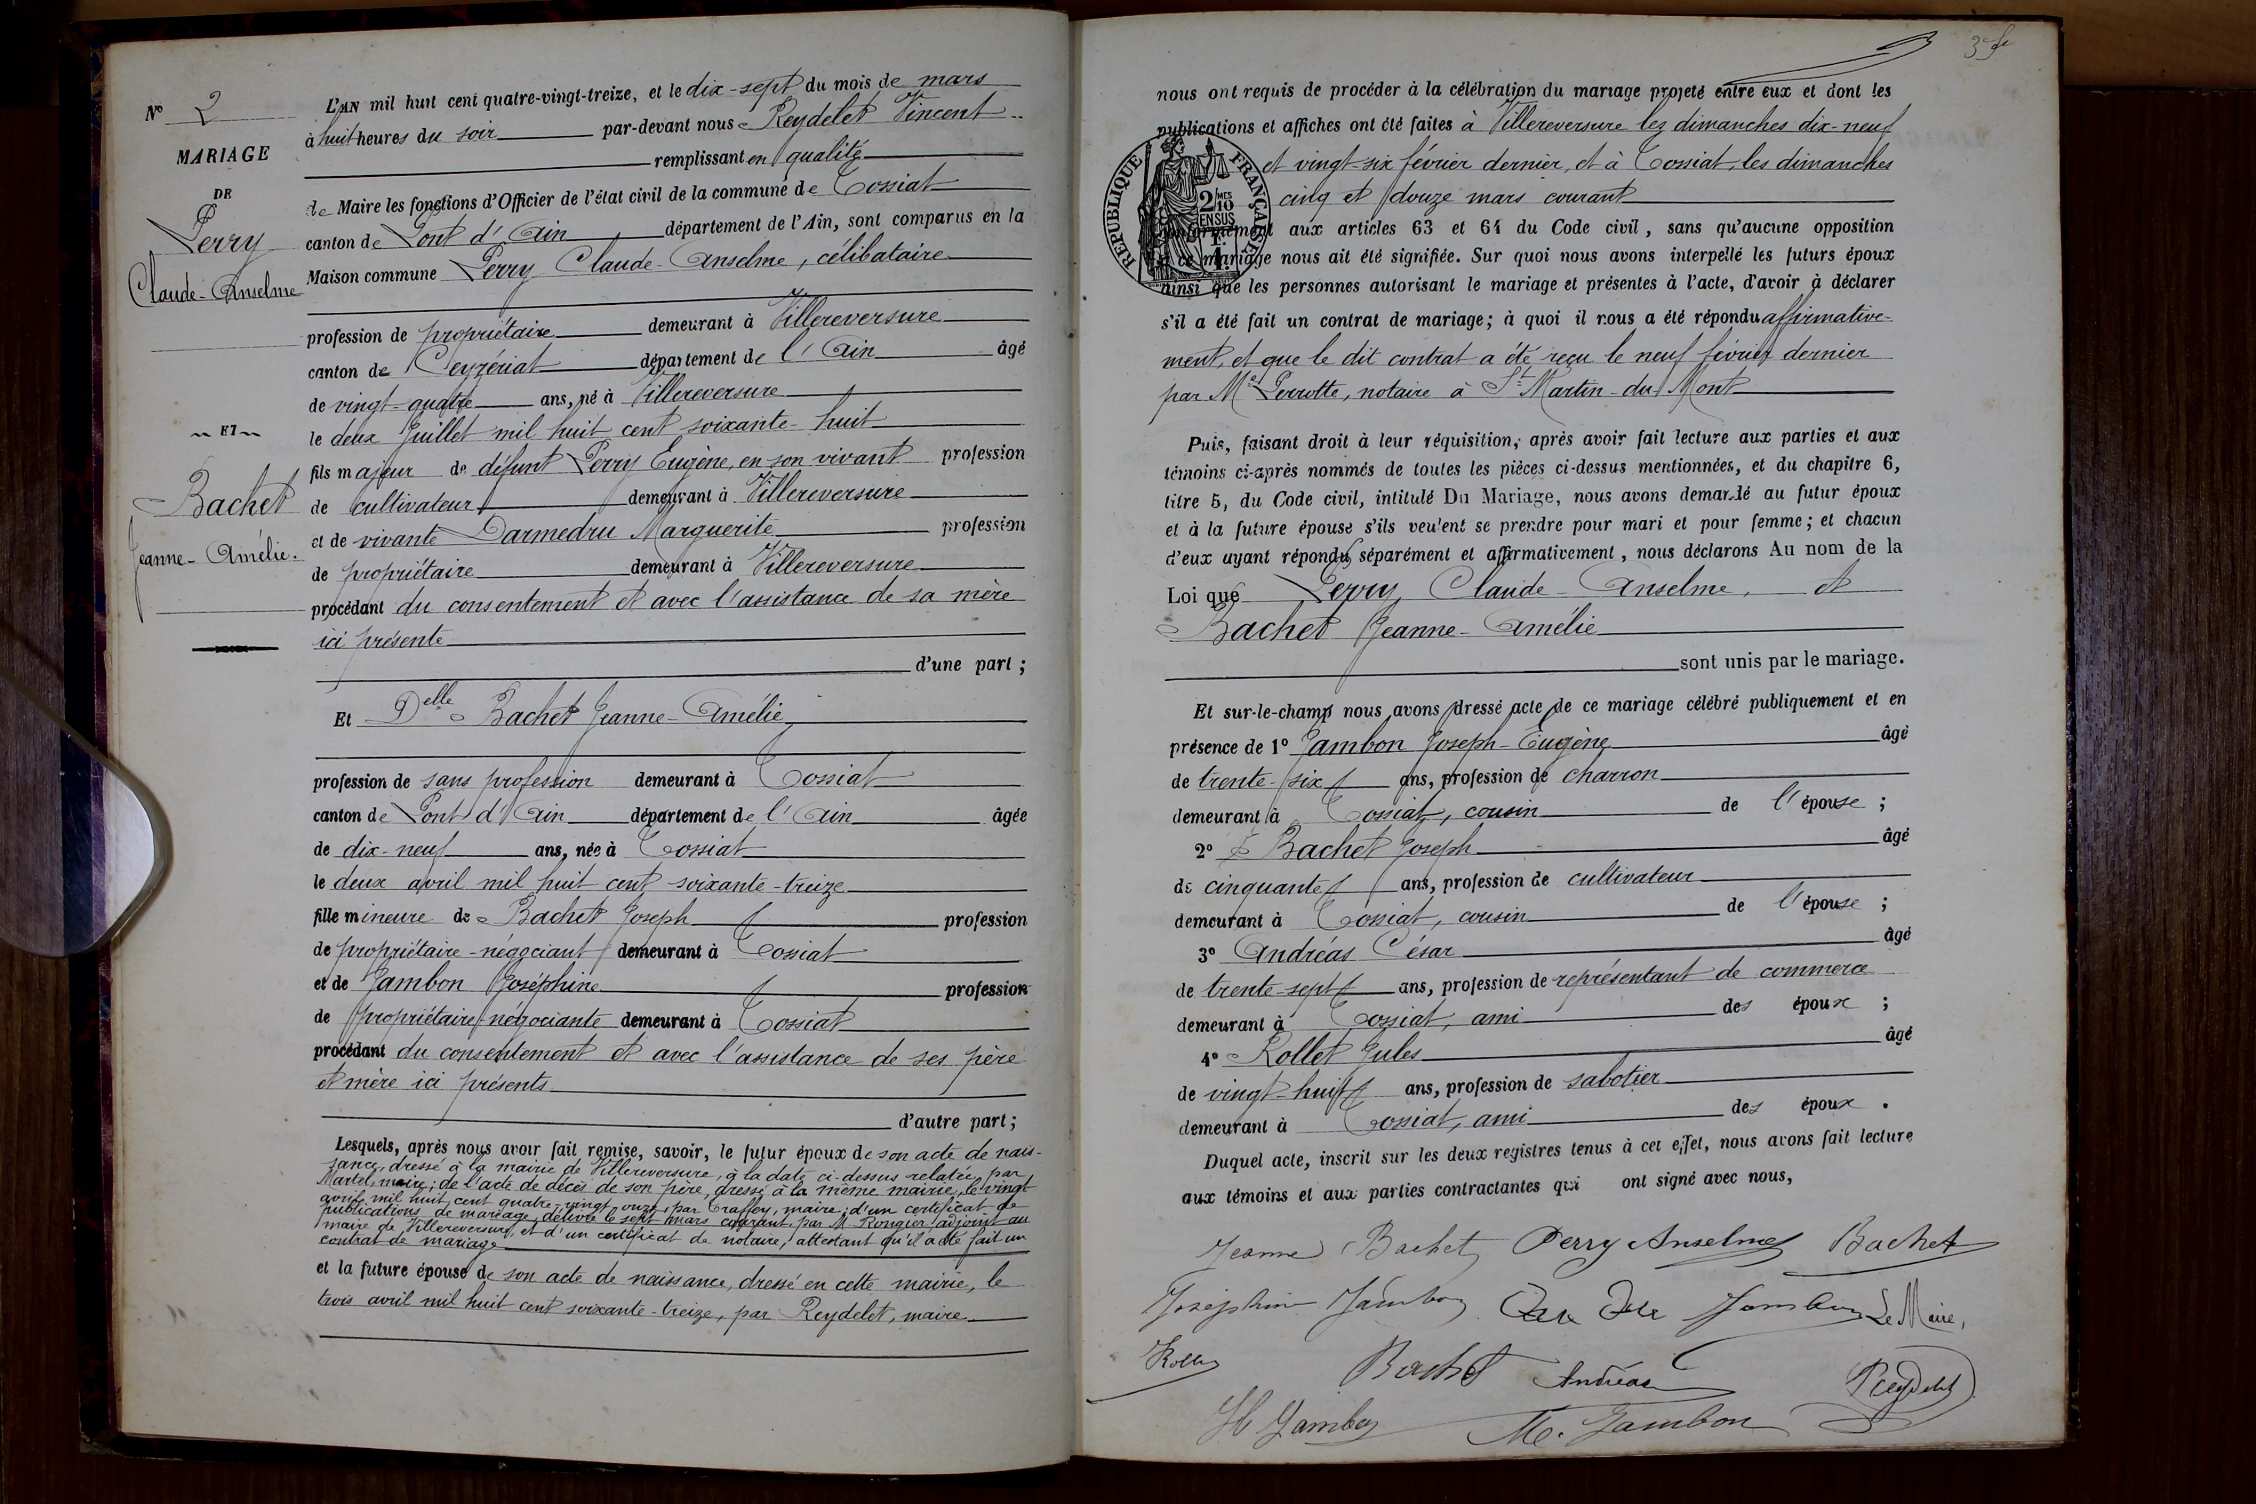 Nº 2
MARIAGE
DE
Perry
Claude-Anselme
ET
Bachet
Jeanne-Amélie.
L'AN mil huit cent quatre-vingt-treize, et le dix-sept du mois de mars
à huit heures du soir par-devant nous Reydelet Vincent
remplissant en qualité
de Maire les fonctions d'Officier de l'état civil de la commune de Tossiat
canton de Pont d'Ain département de l'Ain, sont comparus en la
Maison commune Perry Claude-Anselme, célibataire
profession de propriétaire demeurant à Villereversure
canton de Ceyzériat département de l'Ain âgé
de vingt-quatre ans, né à Villereversure
le deux Juillet mil huit cent soixante-huit
fils majeur de défunt Perry Eugène, en son vivant profession
de cultivateur demeurant à Villereversure
et de vivante Darmedru Marguerite profession
de propriétaire demeurant à Villereversure
procédant du consentement et avec l'assistance de sa mère
ici présente
d'une part ;
Et Delle Bachet Jeanne-Amélie
profession de sans profession demeurant à Tossiat
canton de Pont d'Ain département de l'Ain âgée
de dix-neuf ans, née à Tossiat
le deux avril mil huit cent soixante-treize
fille mineure de Bachet Joseph profession
de propriétaire-négociant demeurant à Tossiat
et de Jambon Joséphine profession
de propriétaire négociante demeurant à Tossiat
procédant du consentement et avec l'assistance de ses père
et mère ici présents
d'autre part ;
Lesquels, après nous avoir fait remise, savoir, le futur époux de son acte de nais-
sance, dressé à la mairie de Villereversure, à la date ci-dessus relatée, par
Martel, maire ; de l'acte de décès de son père, dressé à la même mairie, le vingt
avril mil huit cent quatre-vingt onze, par Traffey, maire ; d'un certificat de
publications de mariage, délivré le sept mars courant, par M. Rougier adjoint au
maire de Villereversure, et d'un certificat de notaire, attestant qu'il a été fait un
contrat de mariage
et la future épouse de son acte de naissance, dressé en cette mairie, le
trois avril mil huit cent soixante-treize, par Reydelet, maire
nous ont requis de procéder à la célébration du mariage projeté entre eux et dont les
publications et affiches ont été faites à Villereversure les dimanches dix-neuf
et vingt-six février dernier, et à Tossiat, les dimanches
cinq et douze mars courant
conformément aux articles 63 et 64 du Code civil, sans qu'aucune opposition
à ce mariage nous ait été signifiée. Sur quoi nous avons interpellé les futurs époux
ainsi que les personnes autorisant le mariage et présentes à l'acte, d'avoir à déclarer
s'il a été fait un contrat de mariage ; à quoi il nous a été répondu affirmative-
ment, et que le dit contrat a été reçu le neuf février dernier
par Me Perrotte, notaire à St Martin-du-Mont
REPUBLIQUE FRANÇAISE
2/10 MES
EN SUS
Puis, faisant droit à leur réquisition, après avoir fait lecture aux parties et aux
témoins ci-après nommés de toutes les pièces ci-dessus mentionnées, et du chapitre 6,
titre 5, du Code civil, intitulé Du Mariage, nous avons demandé au futur époux
et à la future épouse s'ils veulent se prendre pour mari et pour femme ; et chacun
d'eux ayant répondu séparément et affirmativement, nous déclarons Au nom de la
Loi que Perry Claude-Anselme, et
Bachet Jeanne-Amélie
sont unis par le mariage.
Et sur-le-champ nous avons dressé acte de ce mariage célébré publiquement et en
présence de 1º Jambon Joseph-Eugène âgé
de trente-six ans, profession de charron
demeurant à Tossiat, cousin de l'épouse ;
2º Bachet Joseph âgé
de cinquante ans, profession de cultivateur
demeurant à Tossiat, cousin de l'épouse ;
3º Andréas César âgé
de trente-sept ans, profession de représentant de commerce
demeurant à Tossiat, ami des époux ;
4º Rollet Jules âgé
de vingt-huit ans, profession de sabotier
demeurant à Tossiat, ami des époux .
Duquel acte, inscrit sur les deux registres tenus à cet effet, nous avons fait lecture
aux témoins et aux parties contractantes qui ont signé avec nous,
Jeanne Bachet Perry Anselme Bachet
Joséphine Jambon Jambon Le Maire,
Bachet Andréas Reydelet
Jambon M. Jambon